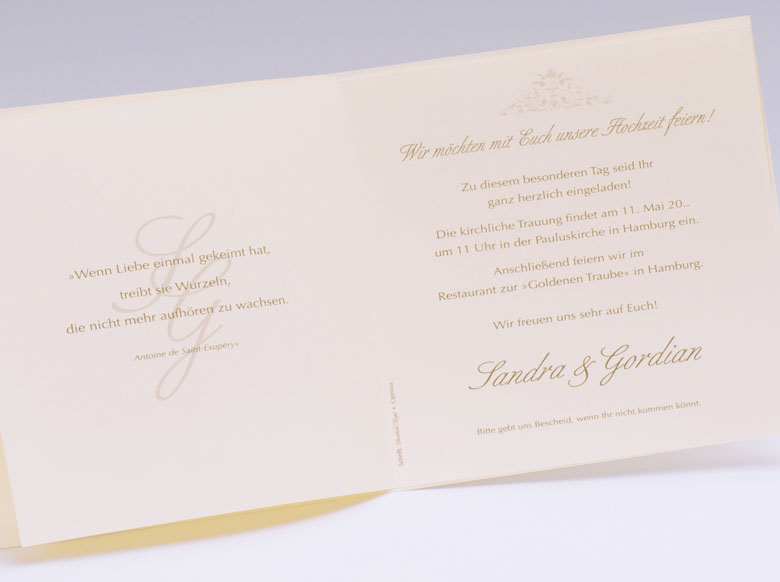 »Wenn Liebe einmal gekeimt hat,
treibt sie Wurzeln,
die nicht mehr aufhören zu wachsen.
Antoine de Saint-Exupéry«
SG
Wir möchten mit Euch unsere Hochzeit feiern!
Zu diesem besonderen Tag seid Ihr
ganz herzlich eingeladen!
Die kirchliche Trauung findet am 11. Mai 20..
um 11 Uhr in der Pauluskirche in Hamburg ein.
Anschließend feiern wir im
Restaurant zur »Goldenen Traube« in Hamburg.
Wir freuen uns sehr auf Euch!
Sandra & Gordian
Bitte gebt uns Bescheid, wenn Ihr nicht kommen könnt.
Schrift: + Optima